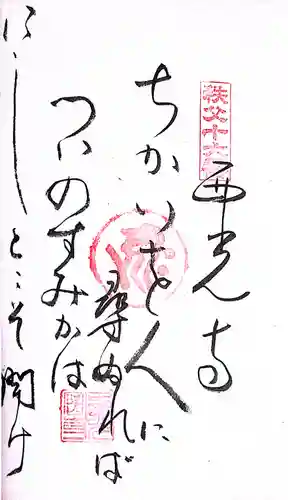 秩父十六番
西光寺
ちかいを人に
尋ぬれば
ついのすみかは
にしとこそ聞け